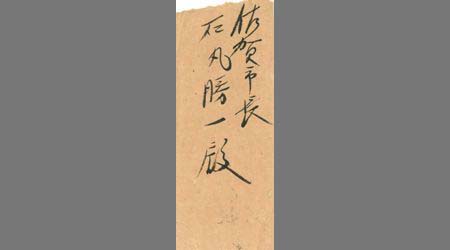 佐賀市長
石丸勝一殿